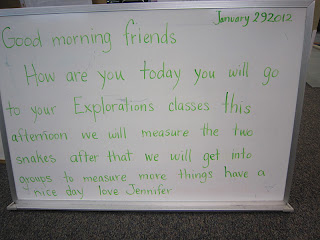 January 292012
Good morning friends
How are you today you will go
to your Explorations classes this
afternoon we will measure the two
snakes after that we will get into
groups to measure more things have a
nice day love Jennifer